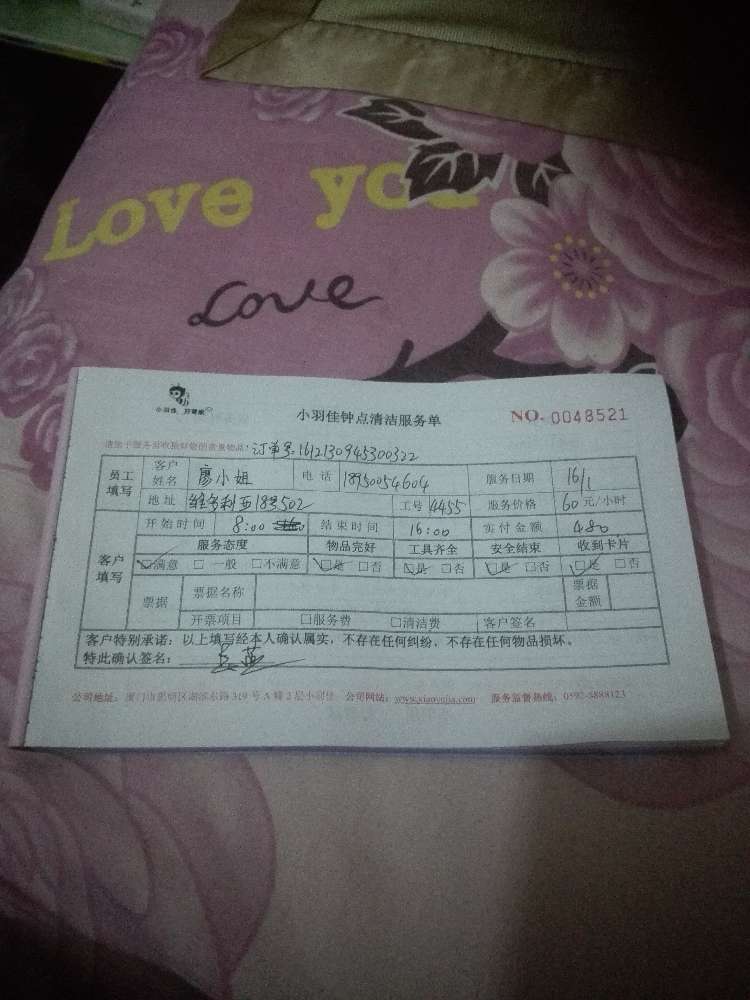 Love you
Love
小羽佳 好帮家
小羽佳钟点清洁服务单
NO. 0048521
订单号:1612130945300322
员工填写 客户姓名 廖小姐 电话 18950054604 服务日期 16/1
地址 维多利亚18号502 工号 4455 服务价格 60元/小时
客户填写 开始时间 8:00 结束时间 16:00 实付金额 480
服务态度 物品完好 工具齐全 安全结束 收到卡片
☑满意 □一般 □不满意 ☑是 □否 ☑是 □否 ☑是 □否 ☑是 □否
票据 票据名称 票据金额
开票项目 □服务费 □清洁费 客户签名
客户特别承诺:以上填写经本人确认属实,不存在任何纠纷,不存在任何物品损坏。
特此确认签名:
公司地址:厦门市思明区湖滨东路319号A幢2层小羽佳 公司网站:www.xiaoyujia.com 服务监督热线:0592-5888123